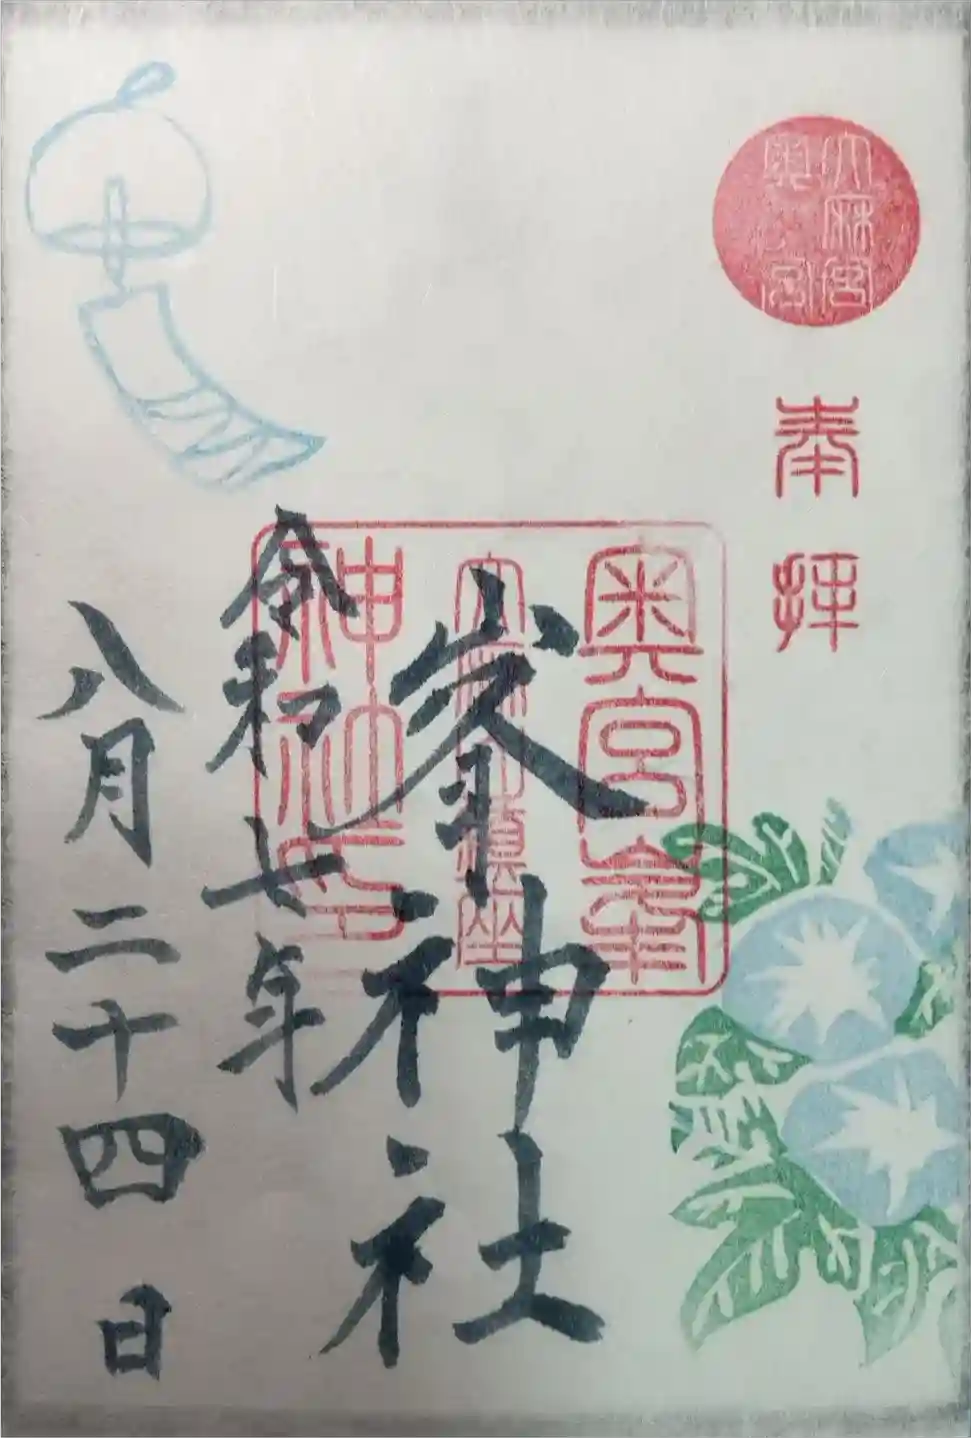 大麻宮
奥宮
奉拝
奥宮峯
神社印
峯神社
令和七年
八月二十四日